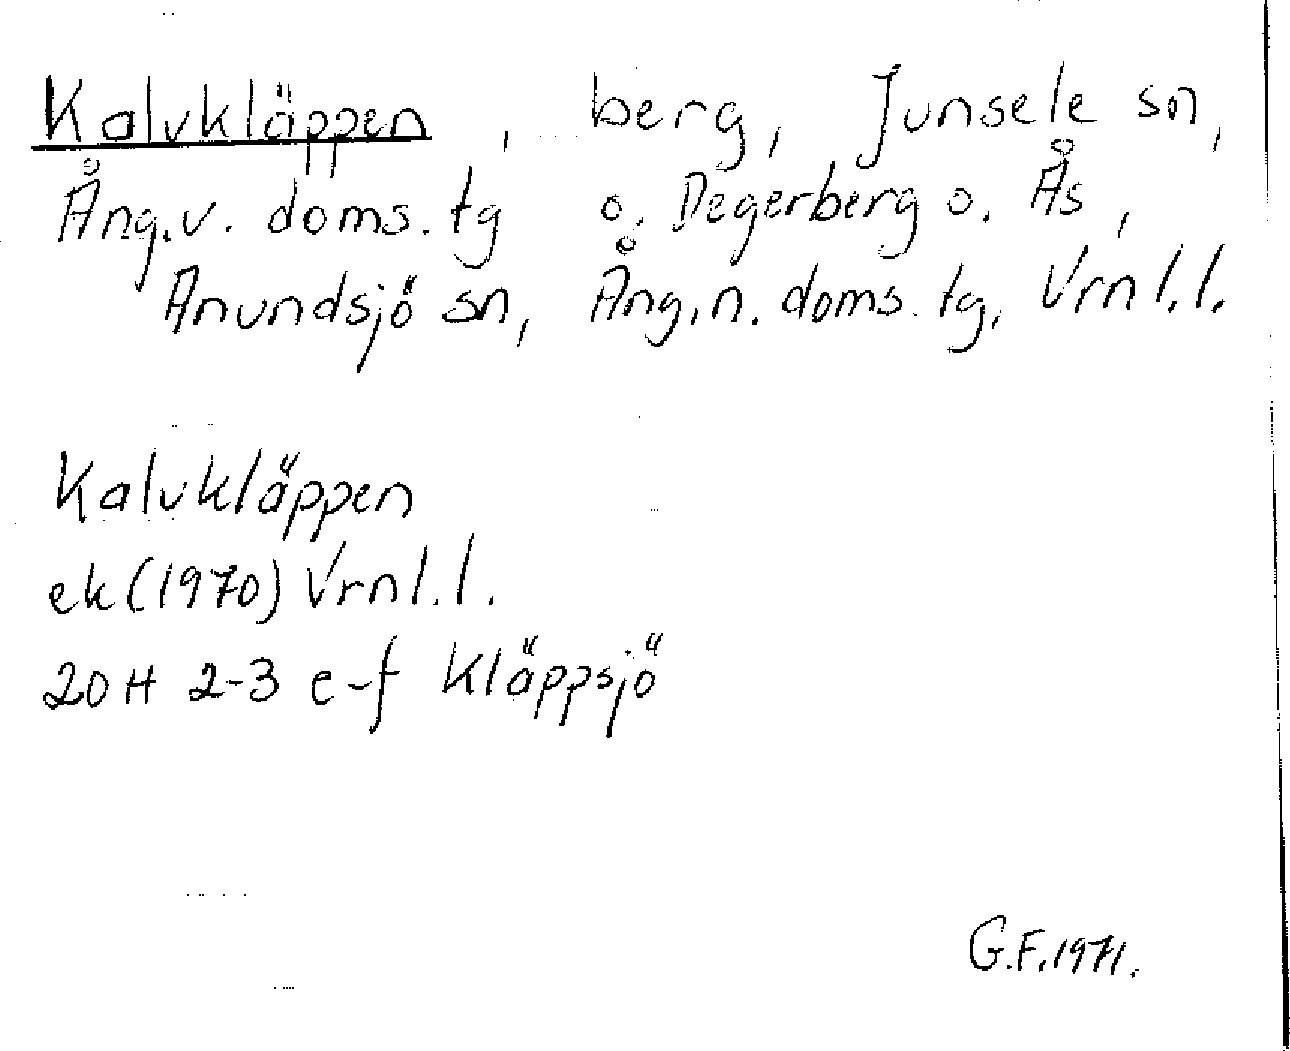 Kalvkläppen, berg, Junsele sn,
Ång.v. doms. tg o. Degerberg o. Ås,
Anundsjö sn, Ång.n. doms. tg, Vrnl.l.
Kalvkläppen
ek (1970) Vrnl.l.
20 H 2-3 e-f Kläppsjö
G.F. 1971.